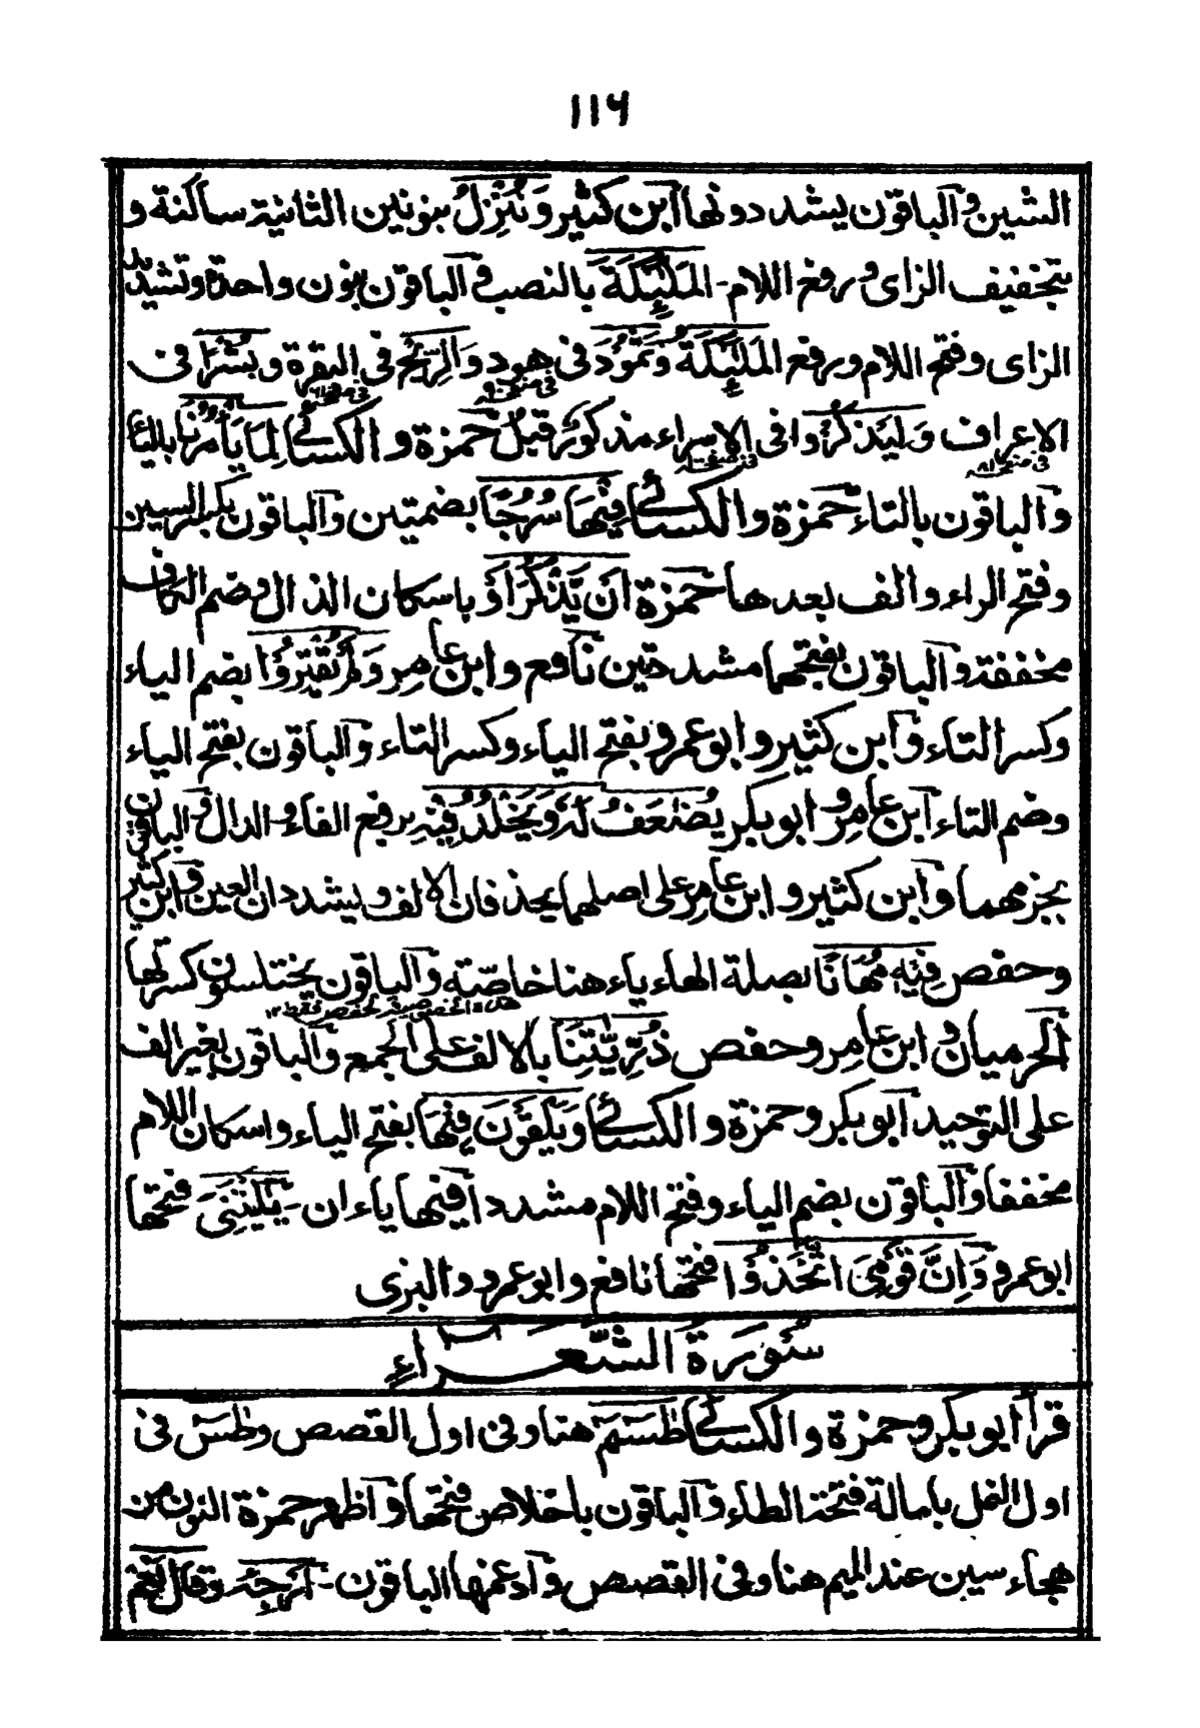 ١١٦
الشين والباقون يشددونها ابن كثير وَنُنْزِلُ بنونين الثانية ساكنة و
بتخفيف الزاى ورفع اللام - المَلٰٓئِكَةَ بالنصب والباقون بنون واحدة وتشديد
الزاى وفتح اللام ورفع المَلٰٓئِكَةُ وَثَمُودَ فى هود وَالرِّيٰحَ فى البقرة وبُشْرًا فى
الاعراف وَلِيَذَّكَّرُوا فى الاسراء مذكور قبل حمزة والكسائى لِمَا يَأْمُرُنَا بالياء
والباقون بالتاء حمزة والكسائى فِيْهَا سُرُجًا بضمتين والباقون بكسر السين
وفتح الراء والف بعدها حمزة اَنْ يَّذْكُرَ اَوْ باسكان الذال وضم الكاف
مخففة والباقون بفتحهما مشددتين نافع وابن عامر وَلَمْ يُقْتِرُوْا بضم الياء
وكسر التاء وابن كثير وابو عمرو بفتح الياء وكسر التاء والباقون بفتح الياء
وضم التاء ابن عامر وابو بكر يُضٰعَفُ لَهٗ وَيَخْلُدُ فِيْهِ برفع الفاء والدال والباقون
بجزمهما وابن كثير وابن عامر على اصلهما يحذفان الالف ويشددان العين وابن كثير
وحفص فِيْهٖ مُهَانًا بصلة الهاء ياء هنا خاصّة والباقون يختلسون كسرتها
الحرميان وابن عامر وحفص ذُرِّيّٰتِنَا بالالف على الجمع والباقون بغير الف
على التوحيد ابو بكر وحمزة والكسائى وَيَلْقَوْنَ فِيْهَا بفتح الياء واسكان اللام
مخففا والباقون بضم الياء وفتح اللام مشددا فيها ياءان - يٰلَيْتَنِىَ فتحها
ابو عمرو وَاِنَّ قَوْمِىَ اتَّخَذُوْا فتحها نافع وابو عمرو والبزى
سُوْرَةُ الشُّعَرَاءِ
قرأ ابو بكر وحمزة والكسائى طٰسٓمّٓ هنا وفى اول القصص وطٰسٓ فى
اول النمل بامالة فتحة الطاء والباقون باخلاص فتحها واظهر حمزة النون من
هجاء سين عند الميم هنا وفى القصص وادغمها الباقون - اَرْجِئْهُ وقَالَ نَعَمْ